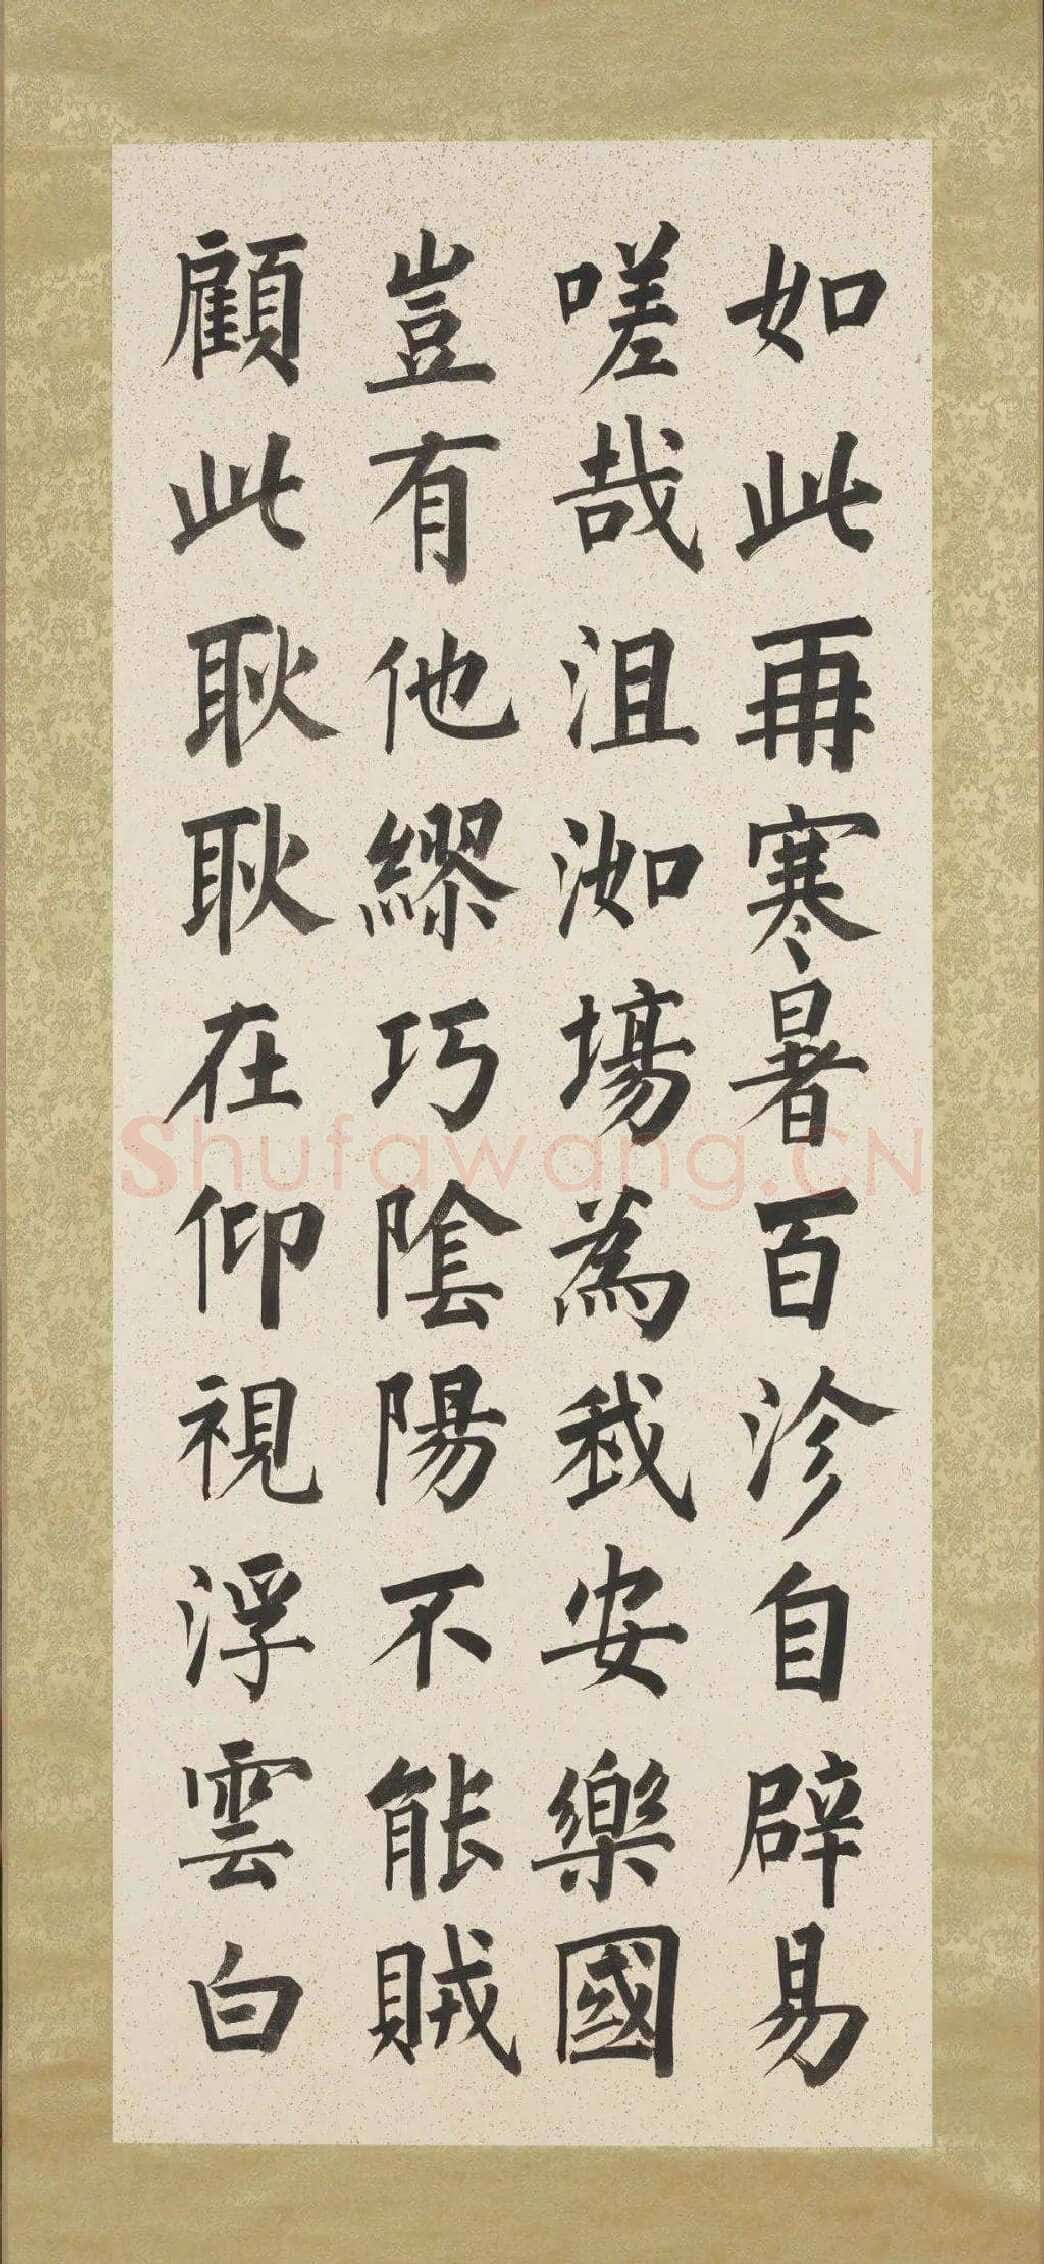 如此再寒暑百沴自辟易
嗟哉沮洳場為我安樂國
豈有他繆巧陰陽不能賊
顧此耿耿在仰視浮雲白
Shufawang.CN